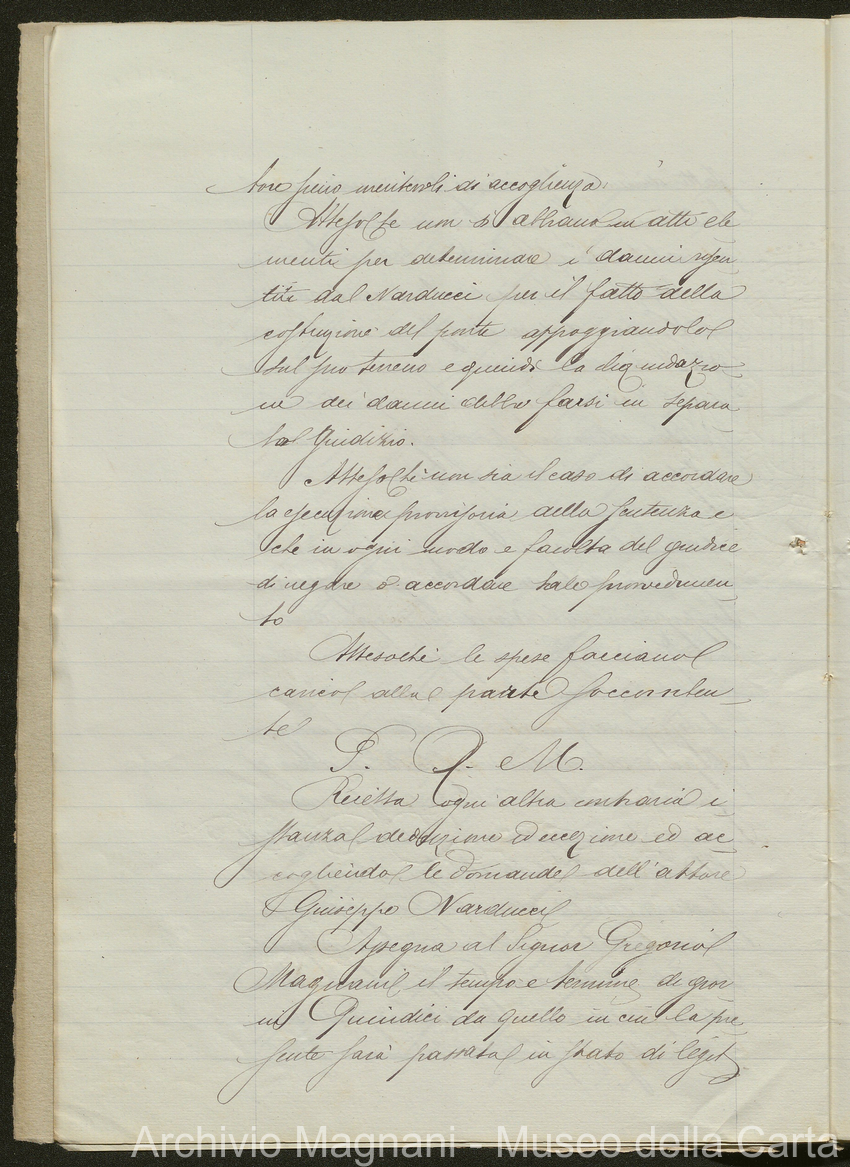 tore sieno meritevoli di accoglienza.
Attesochè non si abbiano in atti ele
menti per determinare i danni risen
titi dal Narducci per il fatto della
costruzione del ponte appoggiandolo
sul suo terreno e quindi la liquidazio
ne dei danni debba farsi in separa
to Giudizio.
Attesochè non sia il caso di accordare
la esecuzione provvisoria della sentenza e
che in ogni modo e facoltà del giudice
di negare o accordare tale provvedimen
to
Attesochè le spese facciano
carico alla parte soccomben
te
P. Q. M.
Reietta ogni altra contraria i
stanza deduzione ed eccezione ed ac
cogliendo le domande dell'attore
Giuseppe Narducci
Assegna al Signor Gregorio
Magnani il tempo e termine di gior
ni Quindici da quello in cui la pre
sente sarà passata in stato di legit
Archivio Magnani - Museo della Carta